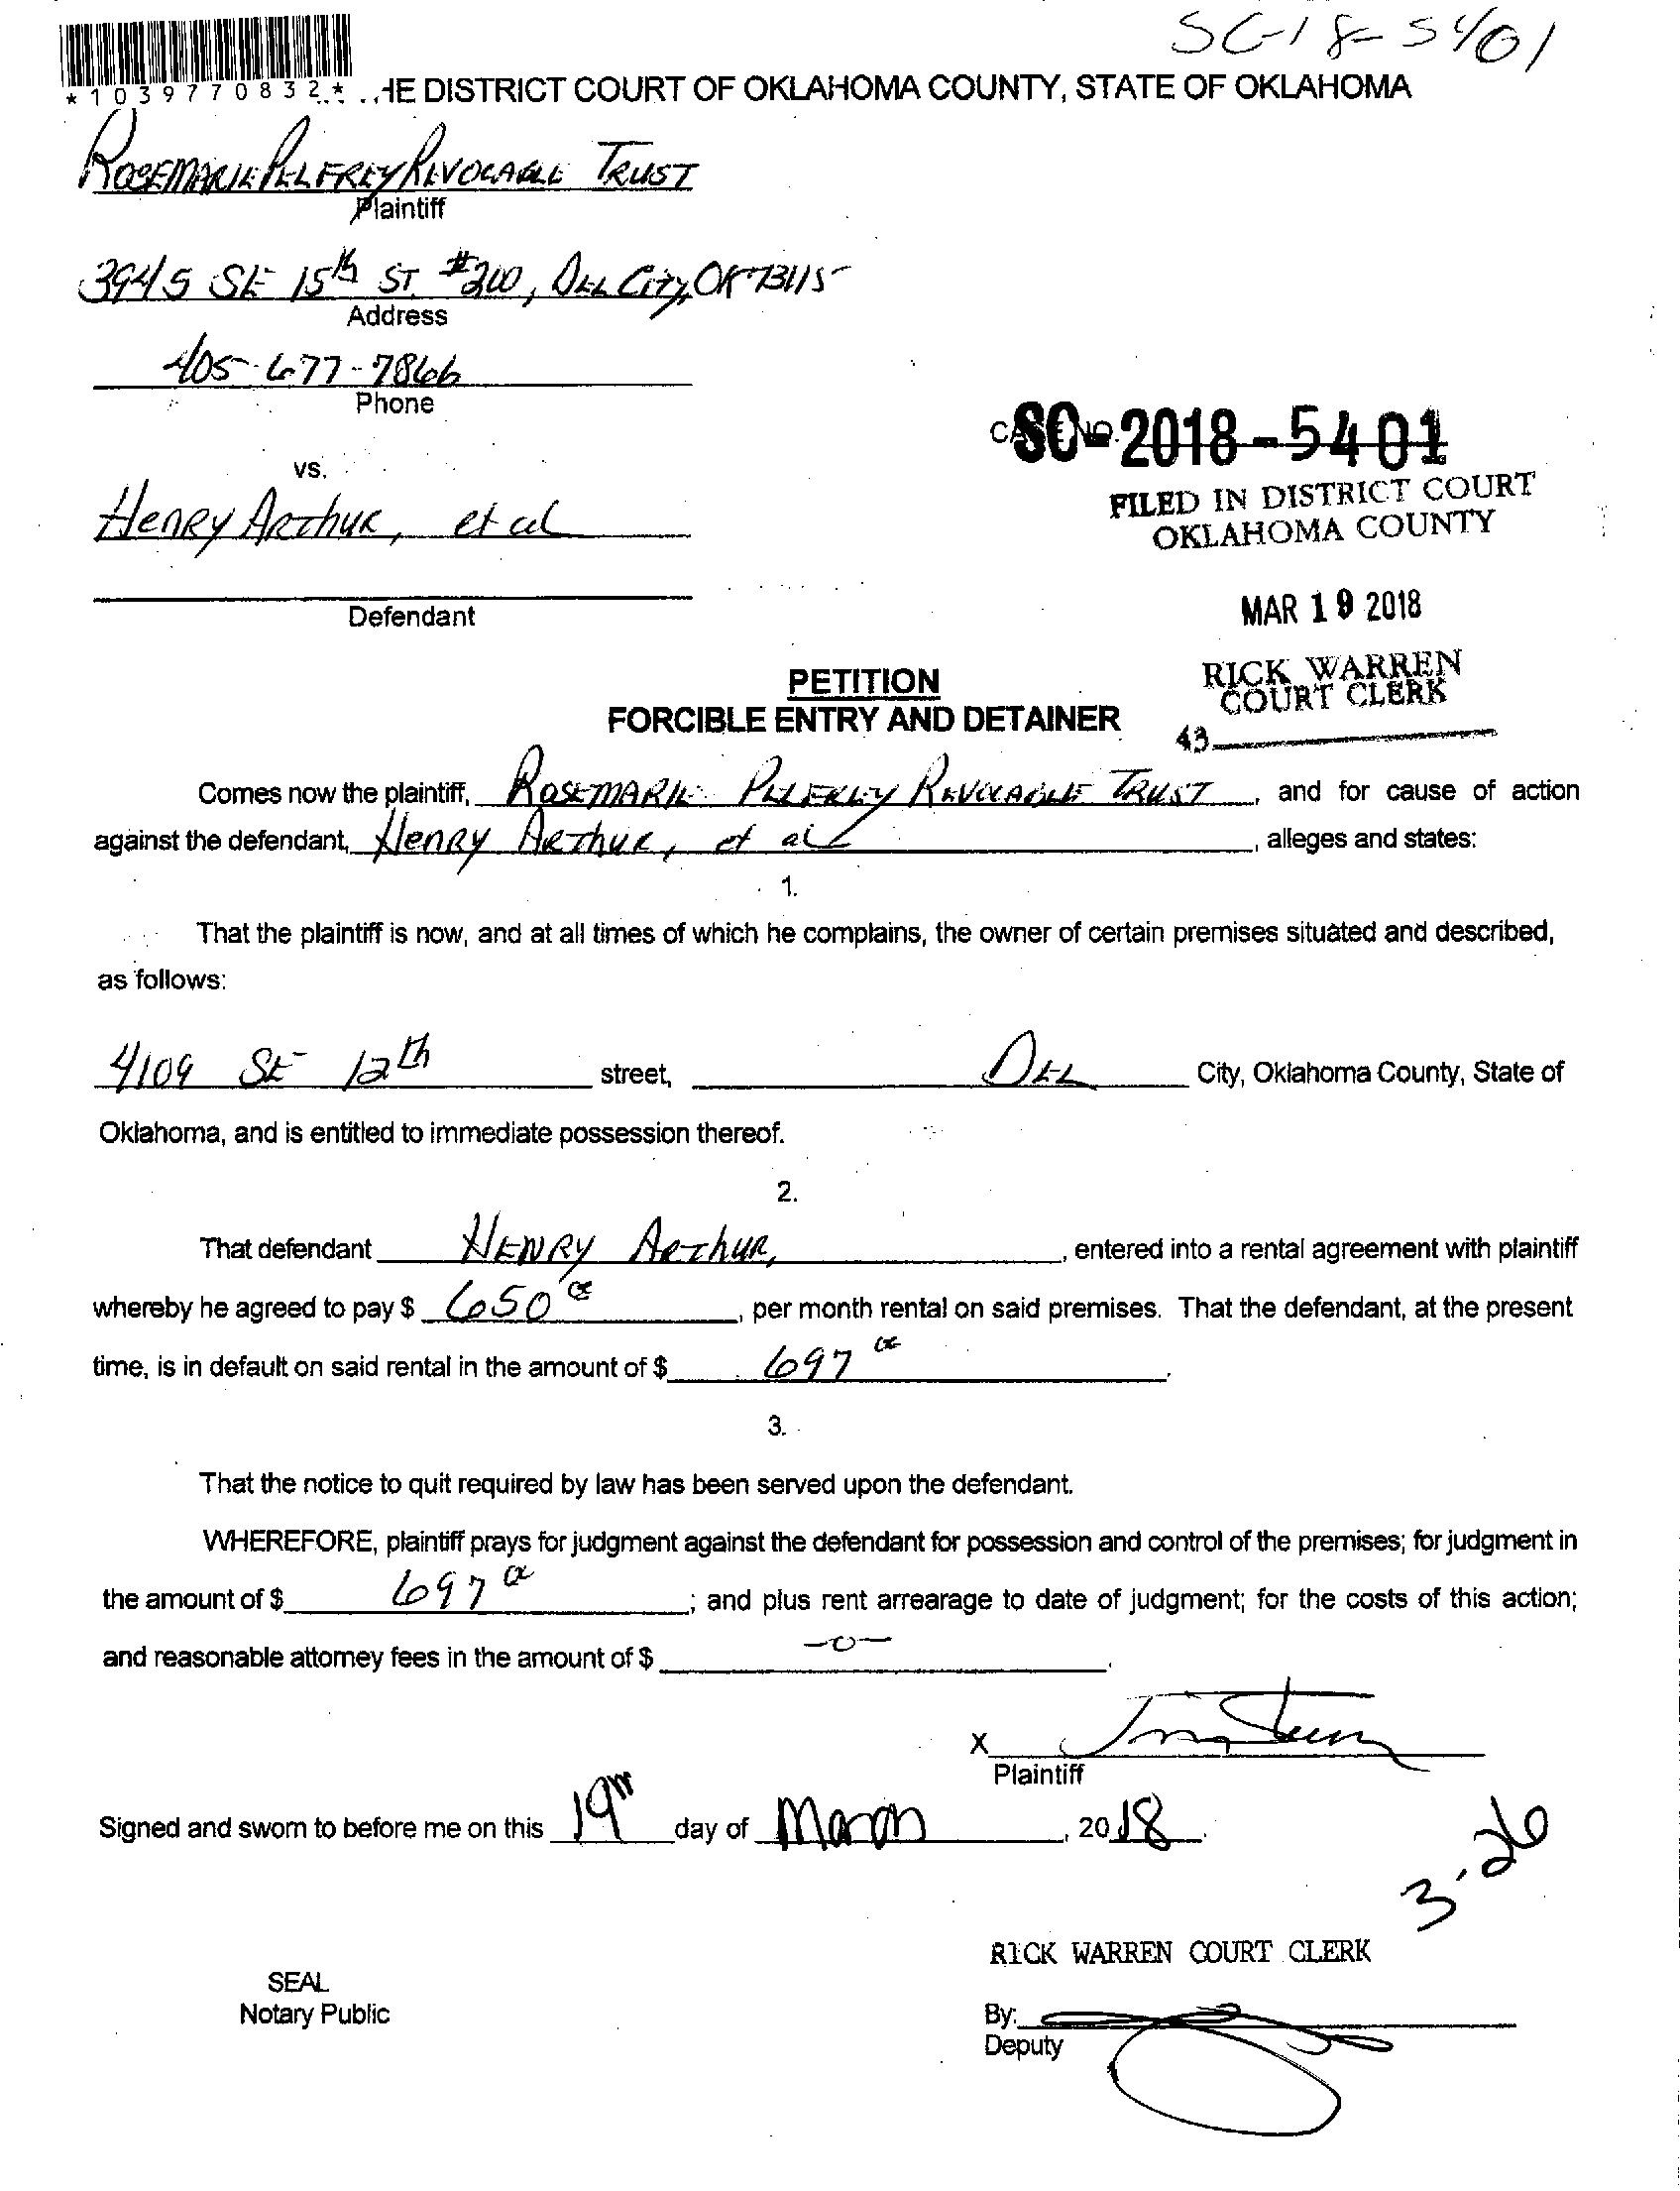 SC-18-5401
*1039770832*
HE DISTRICT COURT OF OKLAHOMA COUNTY, STATE OF OKLAHOMA
ROSEMARIE PELFREY REVOCABLE TRUST
Plaintiff
3945 SE 15th ST. #200, DEL CITY, OK 73115
Address
405-677-7866
Phone
SC-2018-5401
CASE NO.
vs.
FILED IN DISTRICT COURT
OKLAHOMA COUNTY
Henry Arthur, et al
MAR 19 2018
Defendant
RICK WARREN
COURT CLERK
43
PETITION
FORCIBLE ENTRY AND DETAINER
Comes now the plaintiff, ROSEMARIE PELFREY REVOCABLE TRUST, and for cause of action
against the defendant, Henry Arthur, et al, alleges and states:
1.
That the plaintiff is now, and at all times of which he complains, the owner of certain premises situated and described,
as follows:
4109 SE 12th street, DEL City, Oklahoma County, State of
Oklahoma, and is entitled to immediate possession thereof.
2.
That defendant HENRY Arthur, , entered into a rental agreement with plaintiff
whereby he agreed to pay $ 650 00, per month rental on said premises. That the defendant, at the present
time, is in default on said rental in the amount of $ 697 00.
3.
That the notice to quit required by law has been served upon the defendant.
WHEREFORE, plaintiff prays for judgment against the defendant for possession and control of the premises; for judgment in
the amount of $ 697 00; and plus rent arrearage to date of judgment; for the costs of this action;
and reasonable attorney fees in the amount of $ -0-.
X
Plaintiff
Signed and sworn to before me on this 19th day of March, 2018.
3-26
RICK WARREN COURT CLERK
SEAL
Notary Public
By:
Deputy